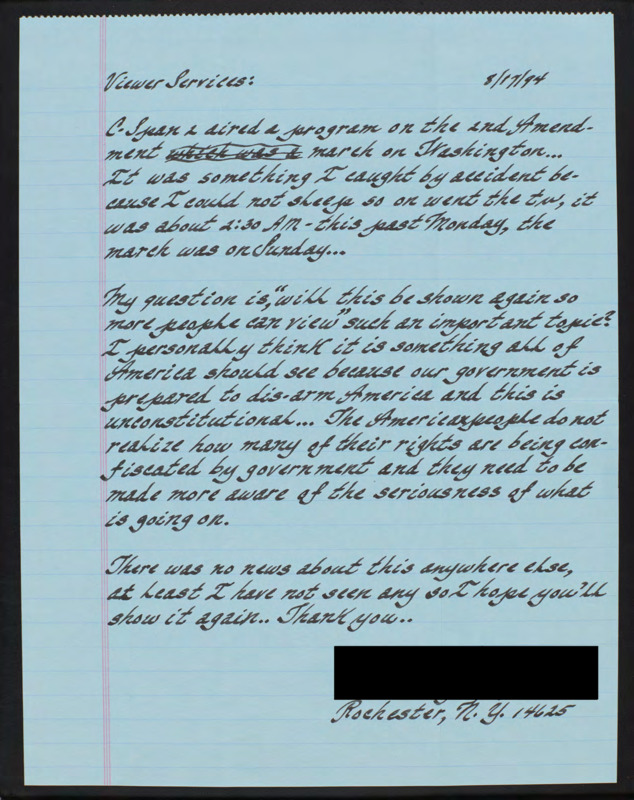 Viewer Services: 8/17/94
C-Span 2 aired a program on the 2nd Amend-
ment which was a march on Washington...
It was something I caught by accident be-
cause I could not sleep so on went the t.v., it
was about 2:30 AM - this past Monday, the
march was on Sunday...
My question is, "will this be shown again so
more people can view" such an important topic?
I personally think it is something all of
America should see because our government is
prepared to dis-arm America and this is
unconstitutional... The American people do not
realize how many of their rights are being con-
fiscated by government and they need to be
made more aware of the seriousness of what
is going on.
There was no news about this anywhere else,
at least I have not seen any so I hope you'll
show it again.. Thank you..
Rochester, N.Y. 14625